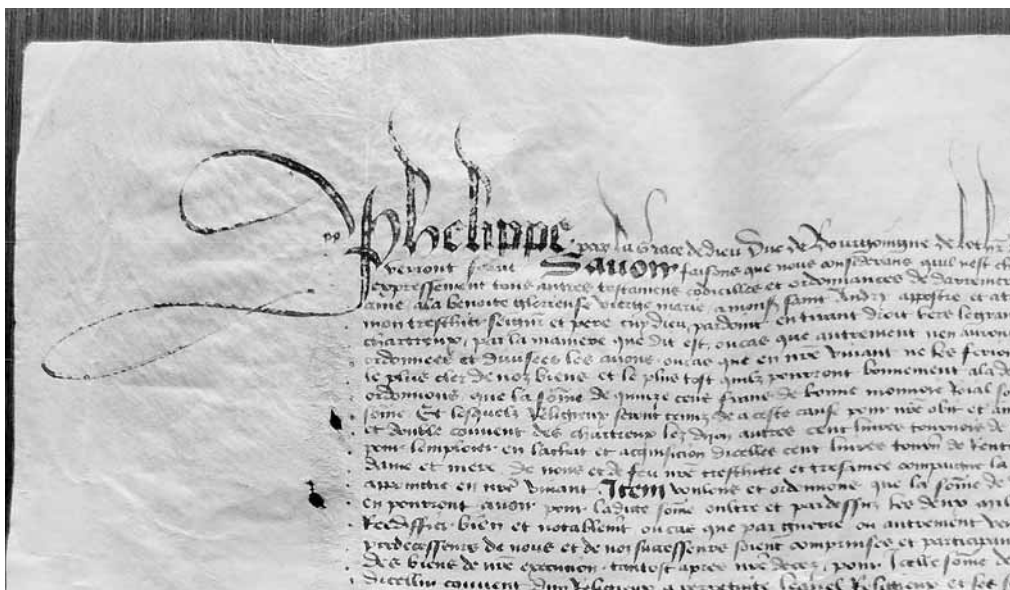 Phelippe par la grace de dieu Duc de Bourgoingne de loth
verront savoir faisons que nous considerans quil nest ch
expressement tous autres testamens codicilles et ordonnances de darreniere
ame a la benoite glorieuse vierge marie a mons saint Andry appostre et a
mon treschier seignr et pere cuy dieu pardoint en tirant droit vers le gran
chartreux, par la maniere que dit est, ou cas que autrement nen auron
ordonnees et divisees les avons, ou cas que en nre vivant ne les ferion
le plus cler de noz biens et le plus tost quilz pourront bonnement a la de
ordonnons, que la some de quinze cens frans de bonne monnoie Roial so
some Et lesquelz Religieux seront tenuz de a ceste cause pour nre obit et an
et double couvent des chartreux lez dijon autres cent livres tournois de
pour lemploier en lachat et acquisicion dicelles cent livres tourn de Rente
dame et mere de nous et de feu nre treschiere et tresamee compaigne la
apparoitre en nre vivant. Item voulons et ordonnons que la some de
en pourront avoir pour ladicte some oultre et pardessuz les deux mil
Reediffier bien et notablemt ou cas que par guerre ou autrement
predecesseurs de nous et de noz successeurs soient comprinses et participan
des biens de nre execution tantost apres nre decez, pour icelle some de
dicellui couvent dun Religieux a perpetuite lequel Religieux et ses